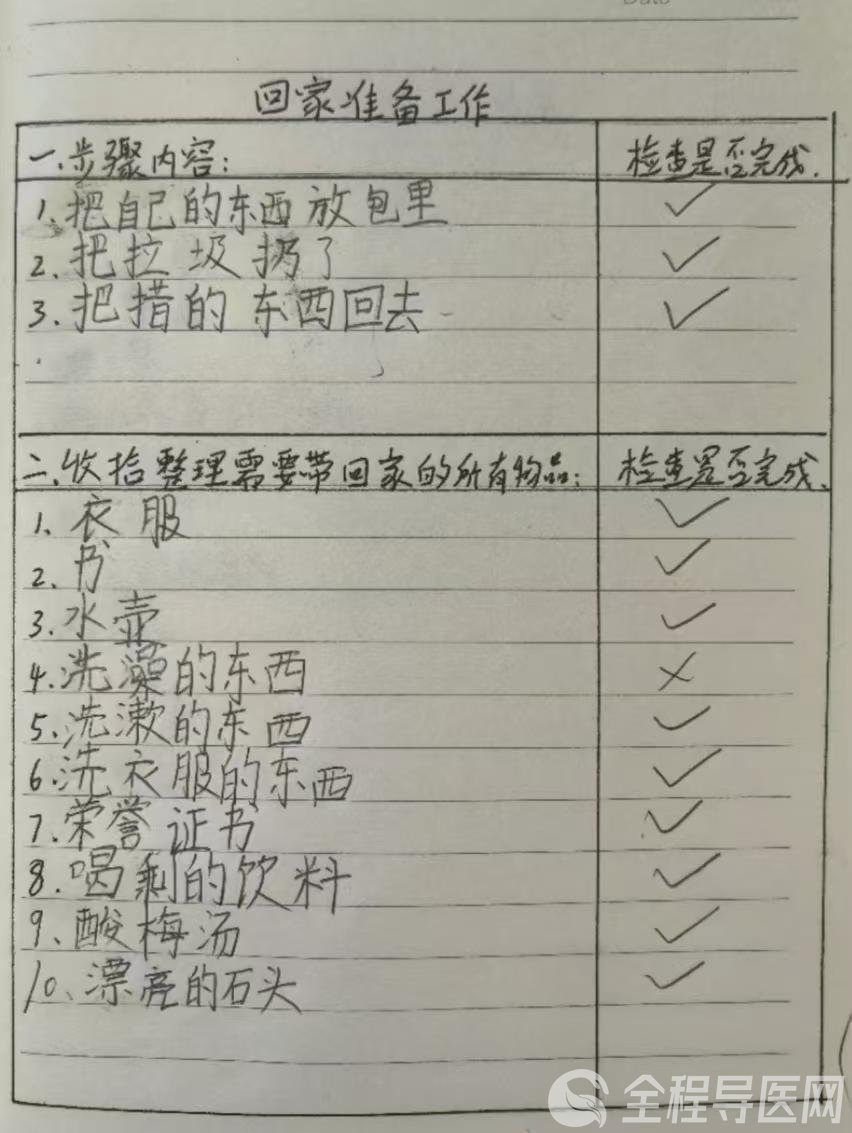 Date
回家准备工作
一.步骤内容: 检查是否完成.
1.把自己的东西放包里 ✓
2.把垃圾扔了 ✓
3.把措的东西回去 ✓
二.收拾整理需要带回家的所有物品: 检查是否完成.
1.衣服 ✓
2.书 ✓
3.水壶 ✓
4.洗澡的东西 ×
5.洗漱的东西 ✓
6.洗衣服的东西 ✓
7.荣誉证书 ✓
8.喝剩的饮料 ✓
9、酸梅汤 ✓
10、漂亮的石头 ✓
全程导医网